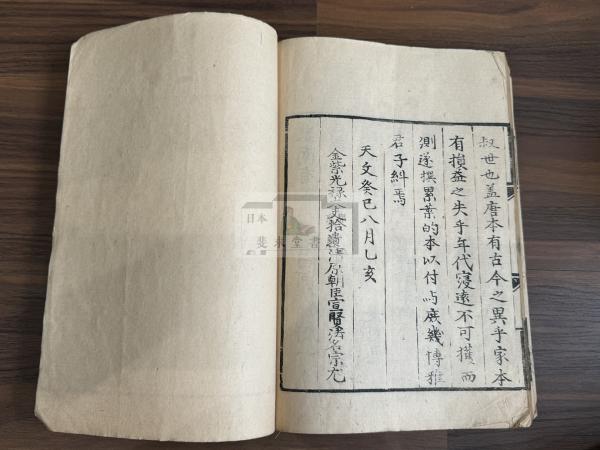 叔世也盖唐本有古今之異乎家本
有損益之失乎年代寖遠不可獲而
測遂撰累葉的本以付与庶幾博雅
君子糾焉
天文癸巳八月乙亥
金紫光禄大夫拾遺清原朝臣宣賢法名宗尤
日本
斐求堂書